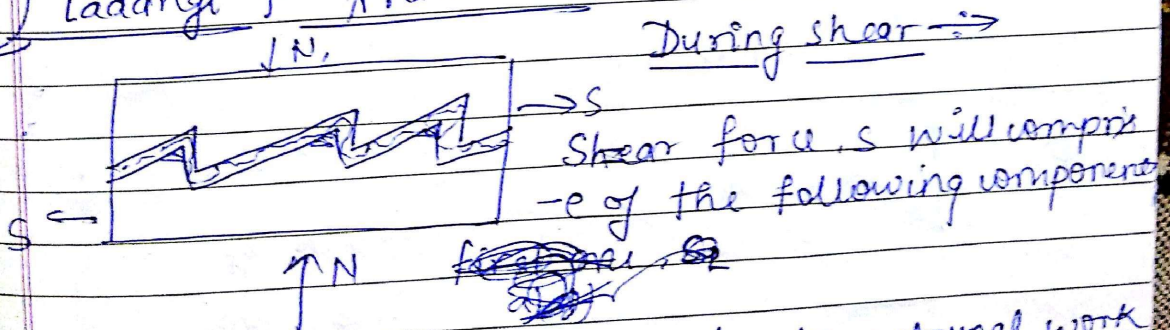 Ladangi
↓N,
During shear →
→ S
Shear force, S will compris
-e of the following component
S ←
↑N
work